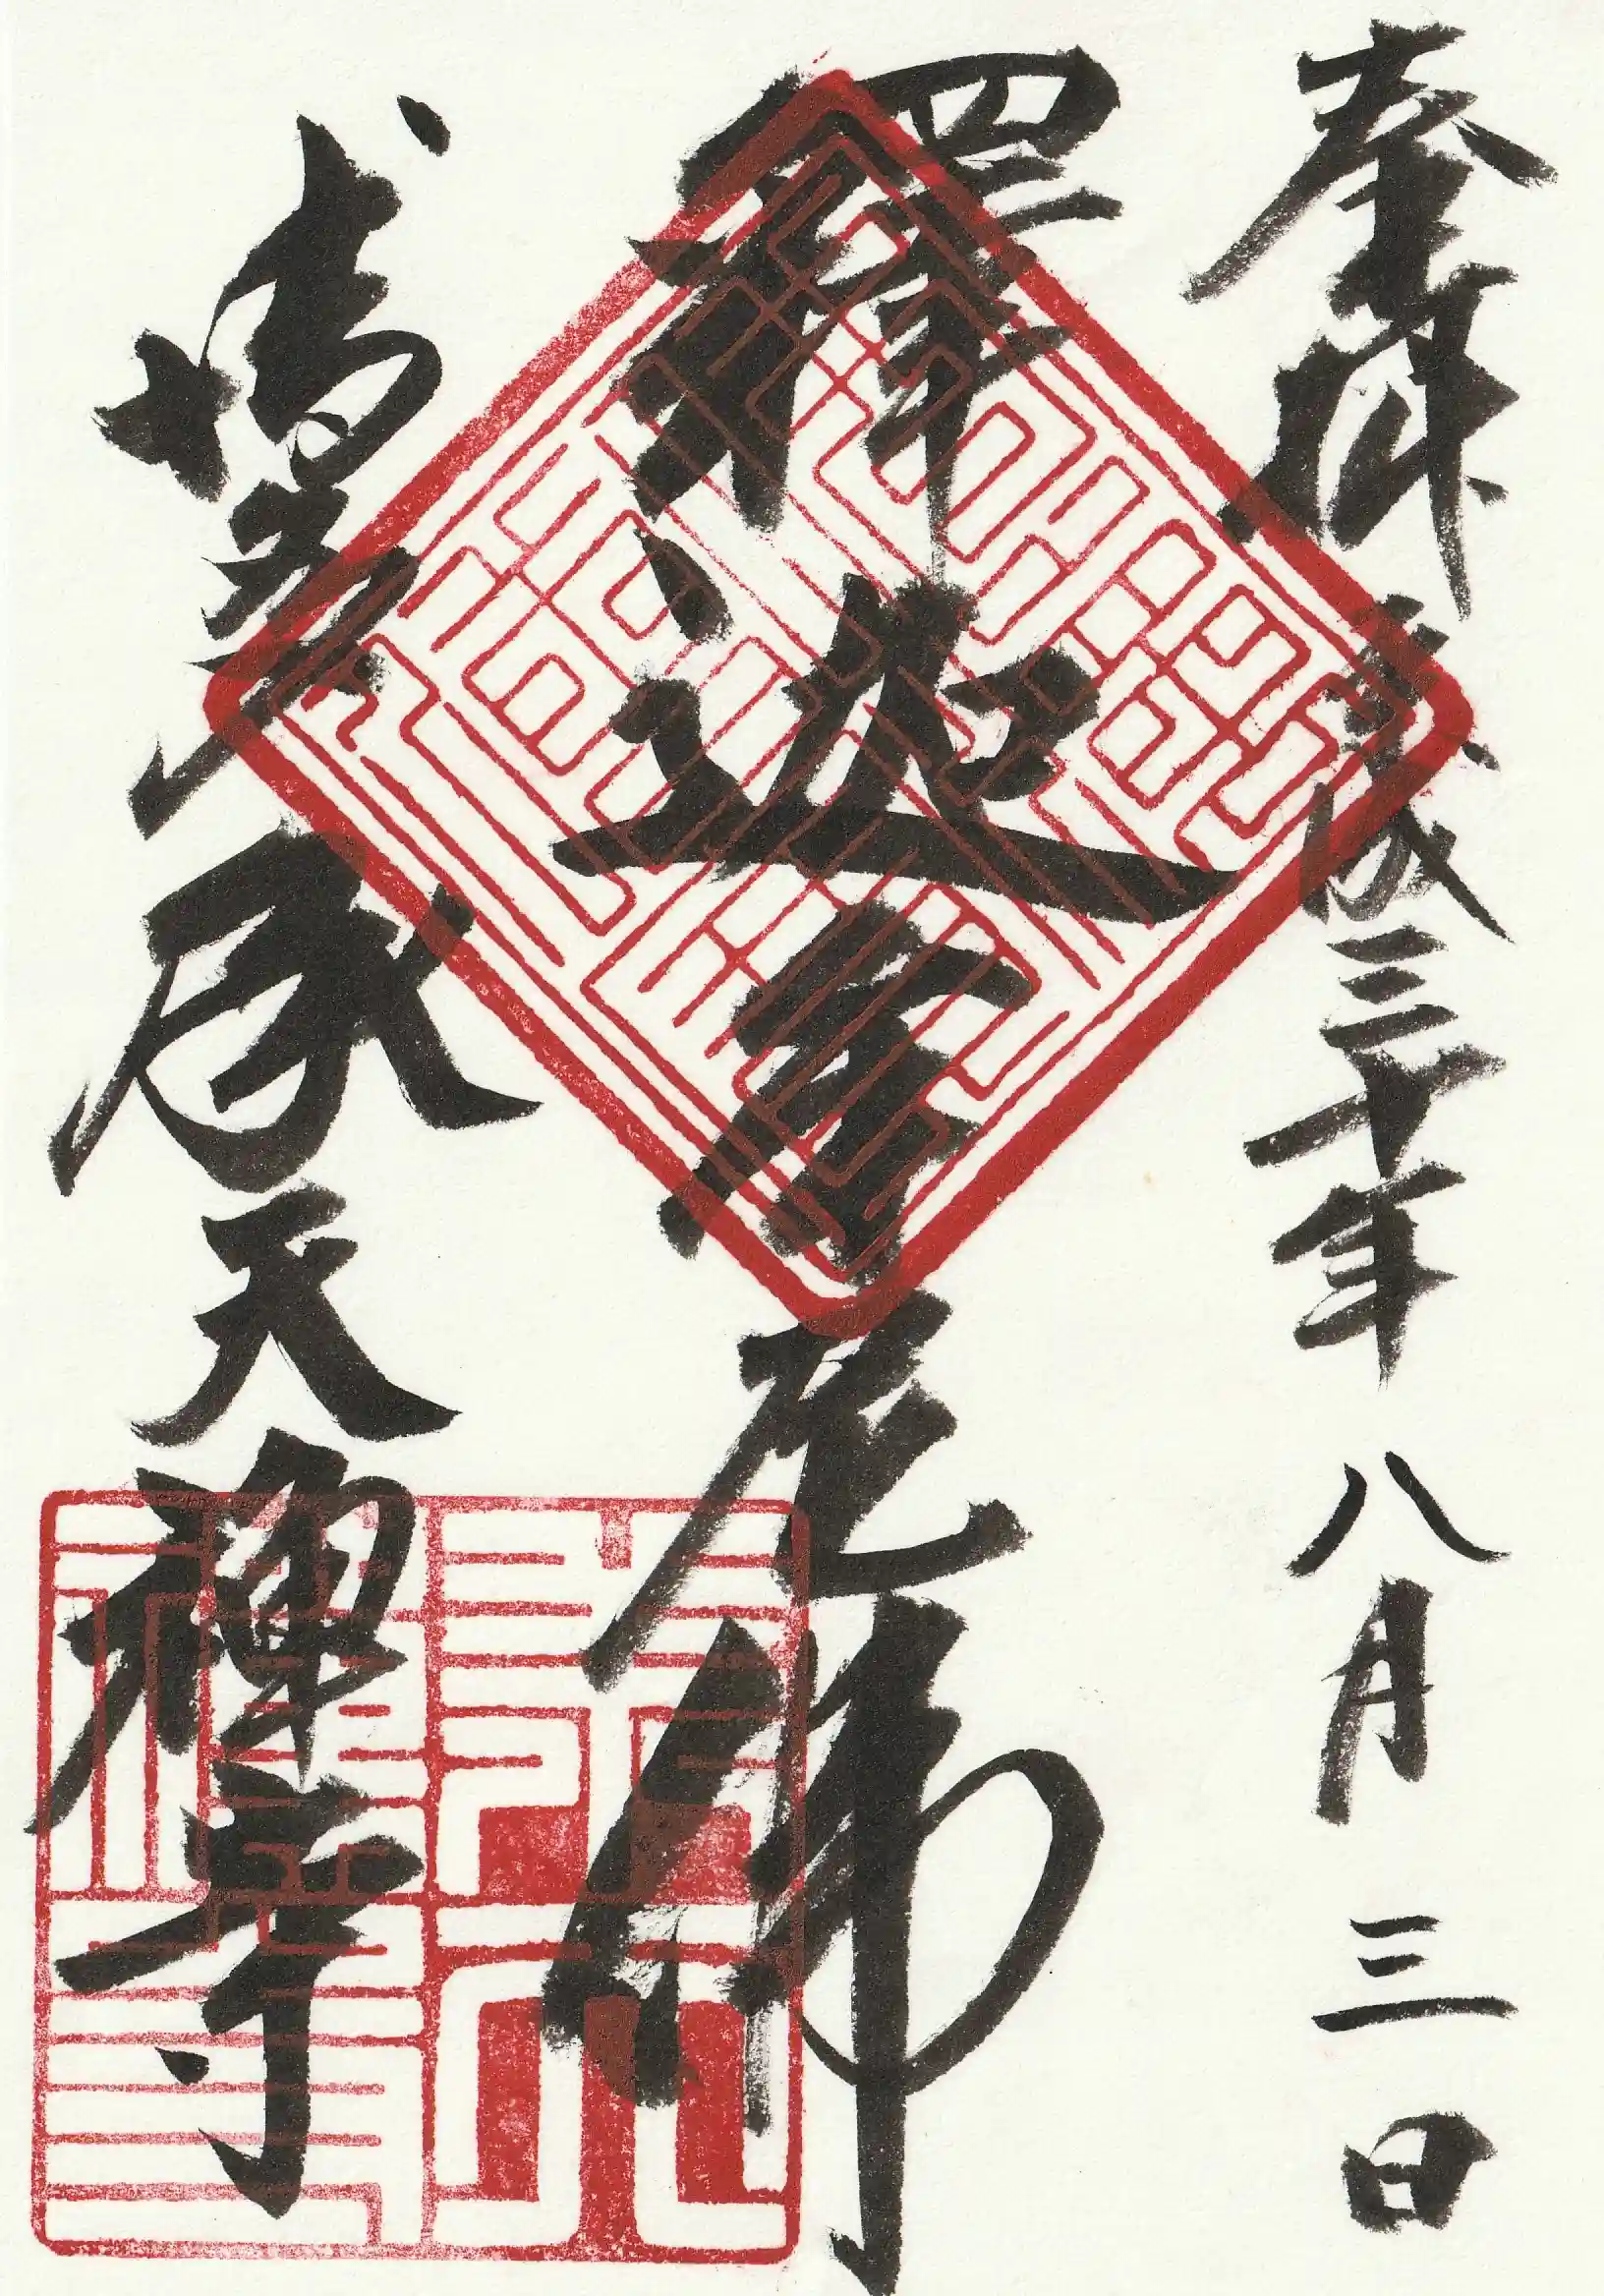 奉拝 平成三十年 八月 三日
釋迦牟尼佛
博多 承天禅寺